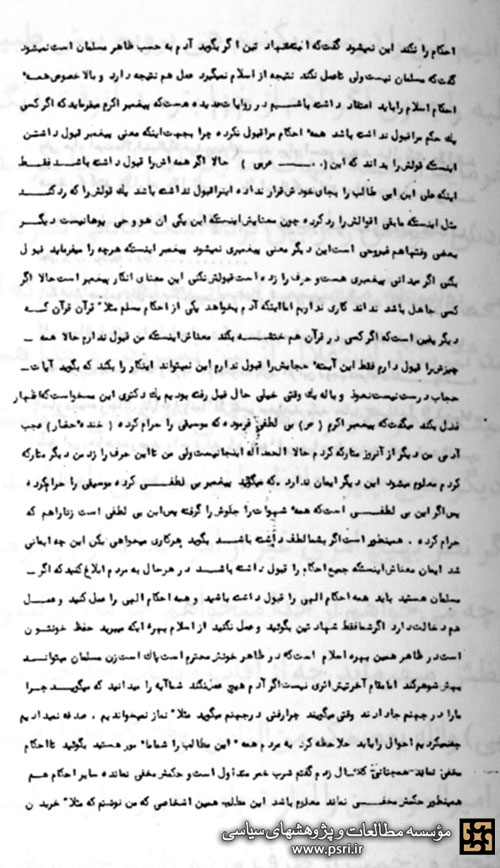 احکام را نکند این نمیشود گفت که اینشهاد تین اگر بگوید آدم به حسب ظاهر مسلمان است نمیشود
گفت که مسلمان نیست ولی تاعمل نکند نتیجه از اسلام نمیگیرد عمل هم نتیجه دارد و بالاخصوص همه
احکام اسلام را باید اعتقاد داشته باشیم در روایات عدیده هست که پیغمبر اکرم میفرماید که اگر کسی
یك حکم مرا قبول نداشته باشد همه احکام مرا قبول نکرده چرا بجهت اینکه معنی پیغمبر قبول داشتن
اینستکه قولش را بداند که این ( عربی ) حالا اگر همه اش را قبول داشته باشد فقط
اینکه علی ابن ابی طالب را بجای خودش قرار نداده اینرا قبول نداشته باشد یك قولش را که رد کند
مثل اینستکه مابقی اقوالش را رد کرده چون معنایش اینستکه این یکی ان هو وحی یوها نیست دیگر
بعضی وقتها هم غیر وحی است این دیگر معنی پیغمبری نمیشود پیغمبر اینستکه هرچه را میفرماید قبولی
بکنی اگر میدانی پیغمبری هست و حرف را زده است قبولش نکنی این معنای انکار پیغمبر است حالا اگر
کسی جاهل باشد نداند کاری نداریم اما اینکه آدم بخواهد یکی از احکام مسلم مثلا قرآن قرآن که
دیگر یقین است که اگر کسی در قرآن هم خدشه بکند معناش اینستکه من قبول ندارم حالا همه
چیزش را قبول دارم فقط این آیه حجابش را قبول ندارم این نمیتواند اینکار را بکند که بگوید آیات
حجاب درست نیست نعوذ و باله یك وقتی خیلی حال قبل رفته بودیم یك دکتری این مسخواست که اظهار
فضل بکند میگفت که پیغمبر اکرم ( ص ) بی لطفی فرموده که موسیقی را حرام کرده ( خنده حضار ) عجب
آدمی من دیگر از آنروز متارکه کردم حالا الحمداله اینجا نیست ولی من تا این حرف را زد من دیگر متارکه
کردم معلوم میشود این دیگر ایمان ندارد که میگوید پیغمبر بی لطفی کرده موسیقی را حرام کرده
پس اگر این بی لطفی است که همه شهوات را جلوش را گرفته پس این بی لطفی است زنا را هم که
حرام کرده . همینطور است اگر بشما لطف داشته باشد بگوید هر کاری میخواهی بکن این چه ایمانی
شد ایمان معناش اینستکه جمیع احکام را قبول داشته باشد در هر حال به مردم ابلاغ کنید که اگر
مسلمان هستید باید همه احکام الهی را قبول داشته باشید و همه احکام الهی را عمل کنید و عمل
هم دخالت دارد اگر شما فقط شهاد تین بگوئید و عمل نکنید از اسلام بهره ایکه میبرید حفظ خونتون
است در ظاهر همین بهره اسلام است که در ظاهر خونش محترم است پاك است زن مسلمان میتواند
بهش شوهر کند اما مقام آخرتیش اثری نیست اگر آدم هیچ عمل نکند شما آیه را میدانید که میگوید چرا
ما را در جهنم جا دادند وقتی میگویند چرا رفتی در جهنم میگوید مثلا نماز نمیخواندیم . صدقه نمیدادیم
احوال را باید ملاحظه کرد به مردم همه این مطالب را شماما مور هستید بگوئید تا احکام
مخفی نماند همچنانی که مثال زدم گفتم شرب خمر متداول است و حکمش مخفی نمانده سایر احکام هم
همینطور حکمش مخفی نماند معلوم باشد این مطلب همین اشخاصی که من نوشتم که مثلا خرید ن
مؤسسه مطالعات و پژوهشهای سیاسی
www.psri.ir